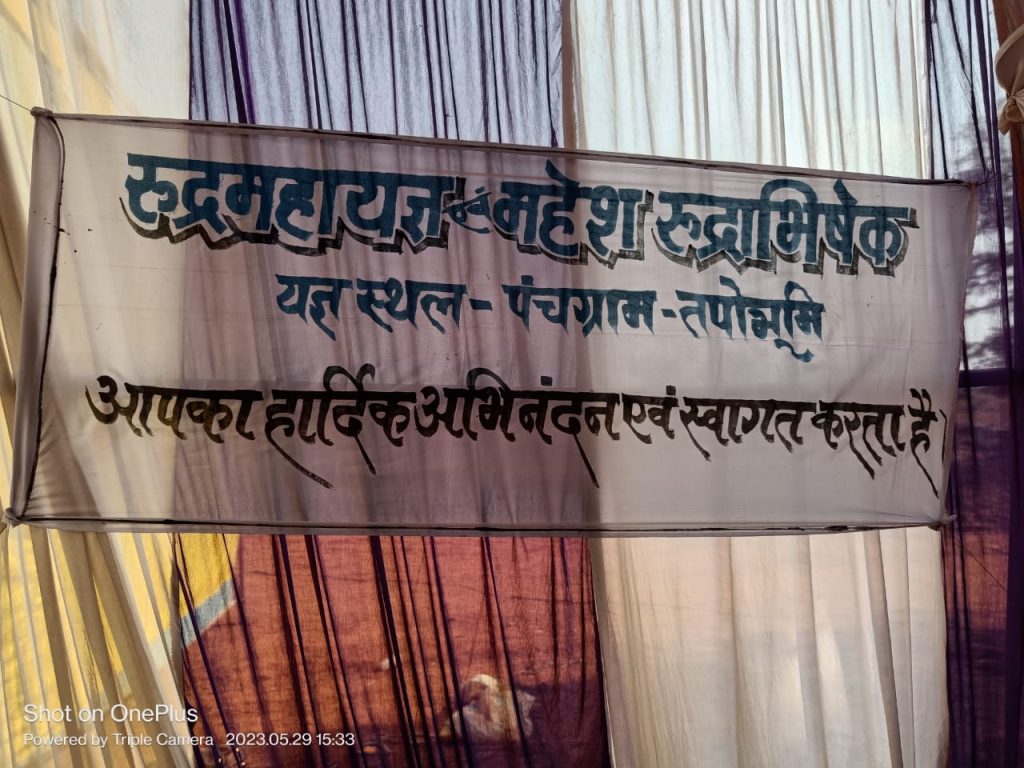 रुद्रमहायज्ञ एवं महेश रुद्राभिषेक
यज्ञ स्थल - पंचग्राम - तपोभूमि
आपका हार्दिक अभिनंदन एवं स्वागत करता है।
Shot on OnePlus
Powered by Triple Camera 2023.05.29 15:33